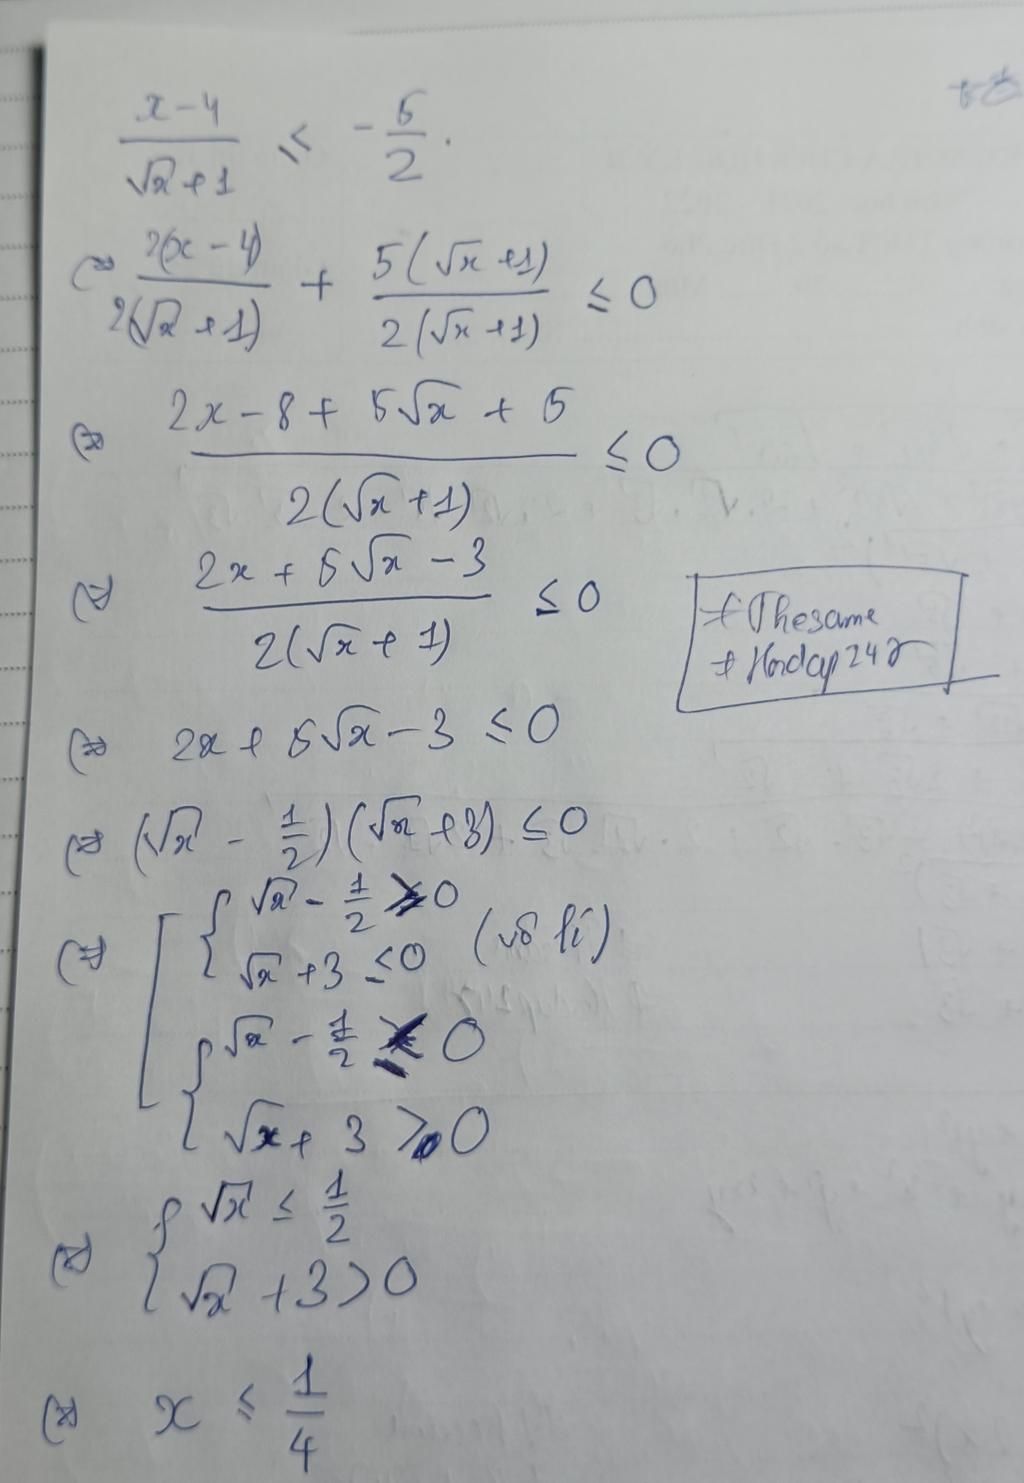 x-4 / √x+1 ≤ -5/2.
⇔ 2(x-4) / 2(√x+1) + 5(√x+1) / 2(√x+1) ≤ 0
⇔ 2x-8+5√x+5 / 2(√x+1) ≤ 0
⇔ 2x+5√x-3 / 2(√x+1) ≤ 0
+ Thesame
+ Hoidap247
⇔ 2x+5√x-3 ≤ 0
⇔ (√x - 1/2)(√x+3) ≤ 0
⇔ [ { √x - 1/2 ≥ 0
√x+3 ≤ 0 (vô lí)
{ √x - 1/2 ≤ 0
√x+3 ≥ 0
⇔ { √x ≤ 1/2
√x+3 > 0
⇔ x ≤ 1/4